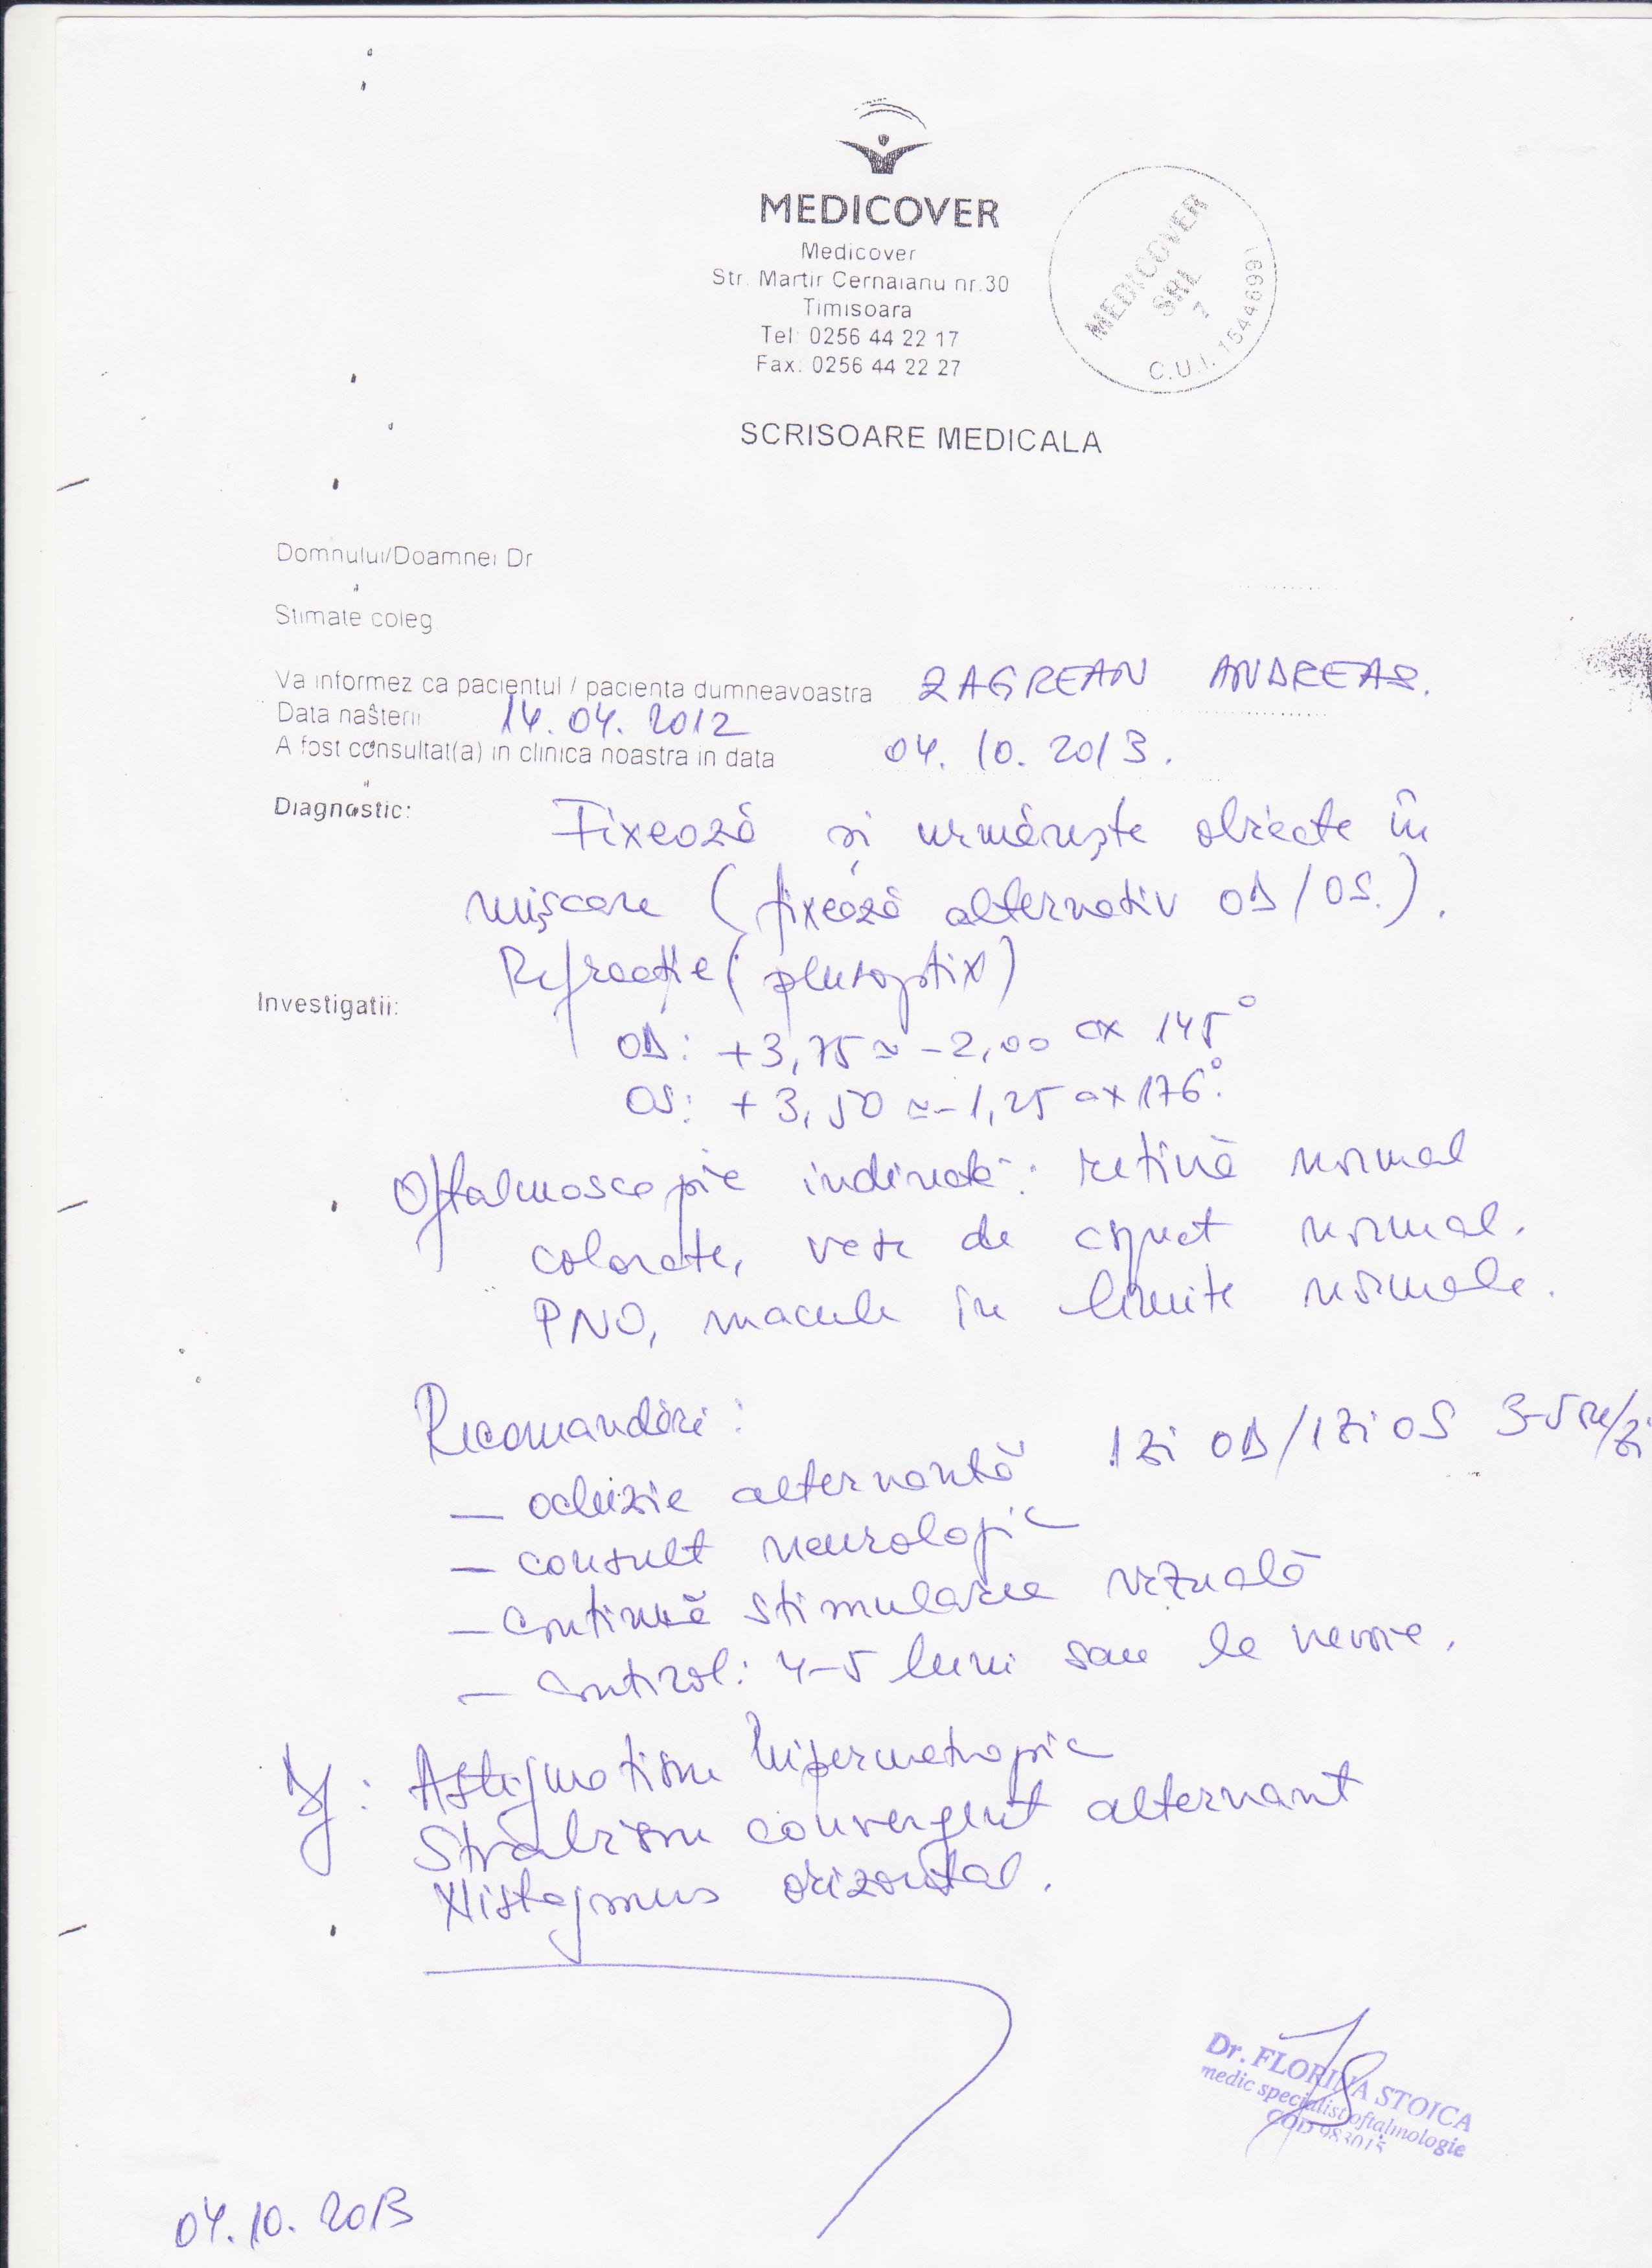 MEDICOVER
Medicover
Str. Martir Cernaianu nr.30
Timisoara
Tel: 0256 44 22 17
Fax: 0256 44 22 27
MEDICOVER
SRL
1
C.U.I. 15446991
SCRISOARE MEDICALA
Domnului/Doamnei Dr
Stimate coleg
Va informez ca pacientul / pacienta dumneavoastra ZAGREAN ANDREAS.
Data nasterii 14.04.2012
A fost consultat(a) in clinica noastra in data 04.10.2013.
Diagnostic: Fixează și urmărește obiecte în
mișcare (fixează alternativ OD/OS.).
Refracție (plusoptix)
Investigatii:
OD: +3,75 ≈ -2,00 ax 145°
OS: +3,50 ≈ -1,25 ax 176°.
Oftalmoscopie indirectă: retină normal
colorate, vase de aspect normal.
PNO, macule în limite normale.
Recomandări:
— ocluzie alternantă 1zi OD/1zi OS 3-5 ore/zi
— consult neurologic
— continuă stimularea vizuală
— control: 4-5 luni sau la nevoie.
Dg: Astigmatism hipermetropic
Strabism convergent alternant
Nistagmus orizontal.
Dr. FLORINA STOICA
medic specialist oftalmologie
COD 983015
04.10.2013